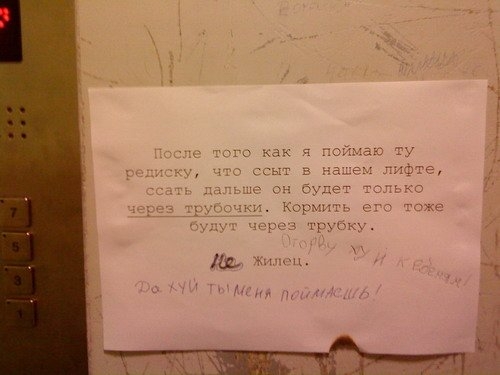 После того как я поймаю ту
редиску, что ссыт в нашем лифте,
ссать дальше он будет только
через трубочки. Кормить его тоже
будут через трубку.
Оторву хуй к ебеням!
не Жилец.
Да хуй ты меня поймаешь!
7
5
3
1